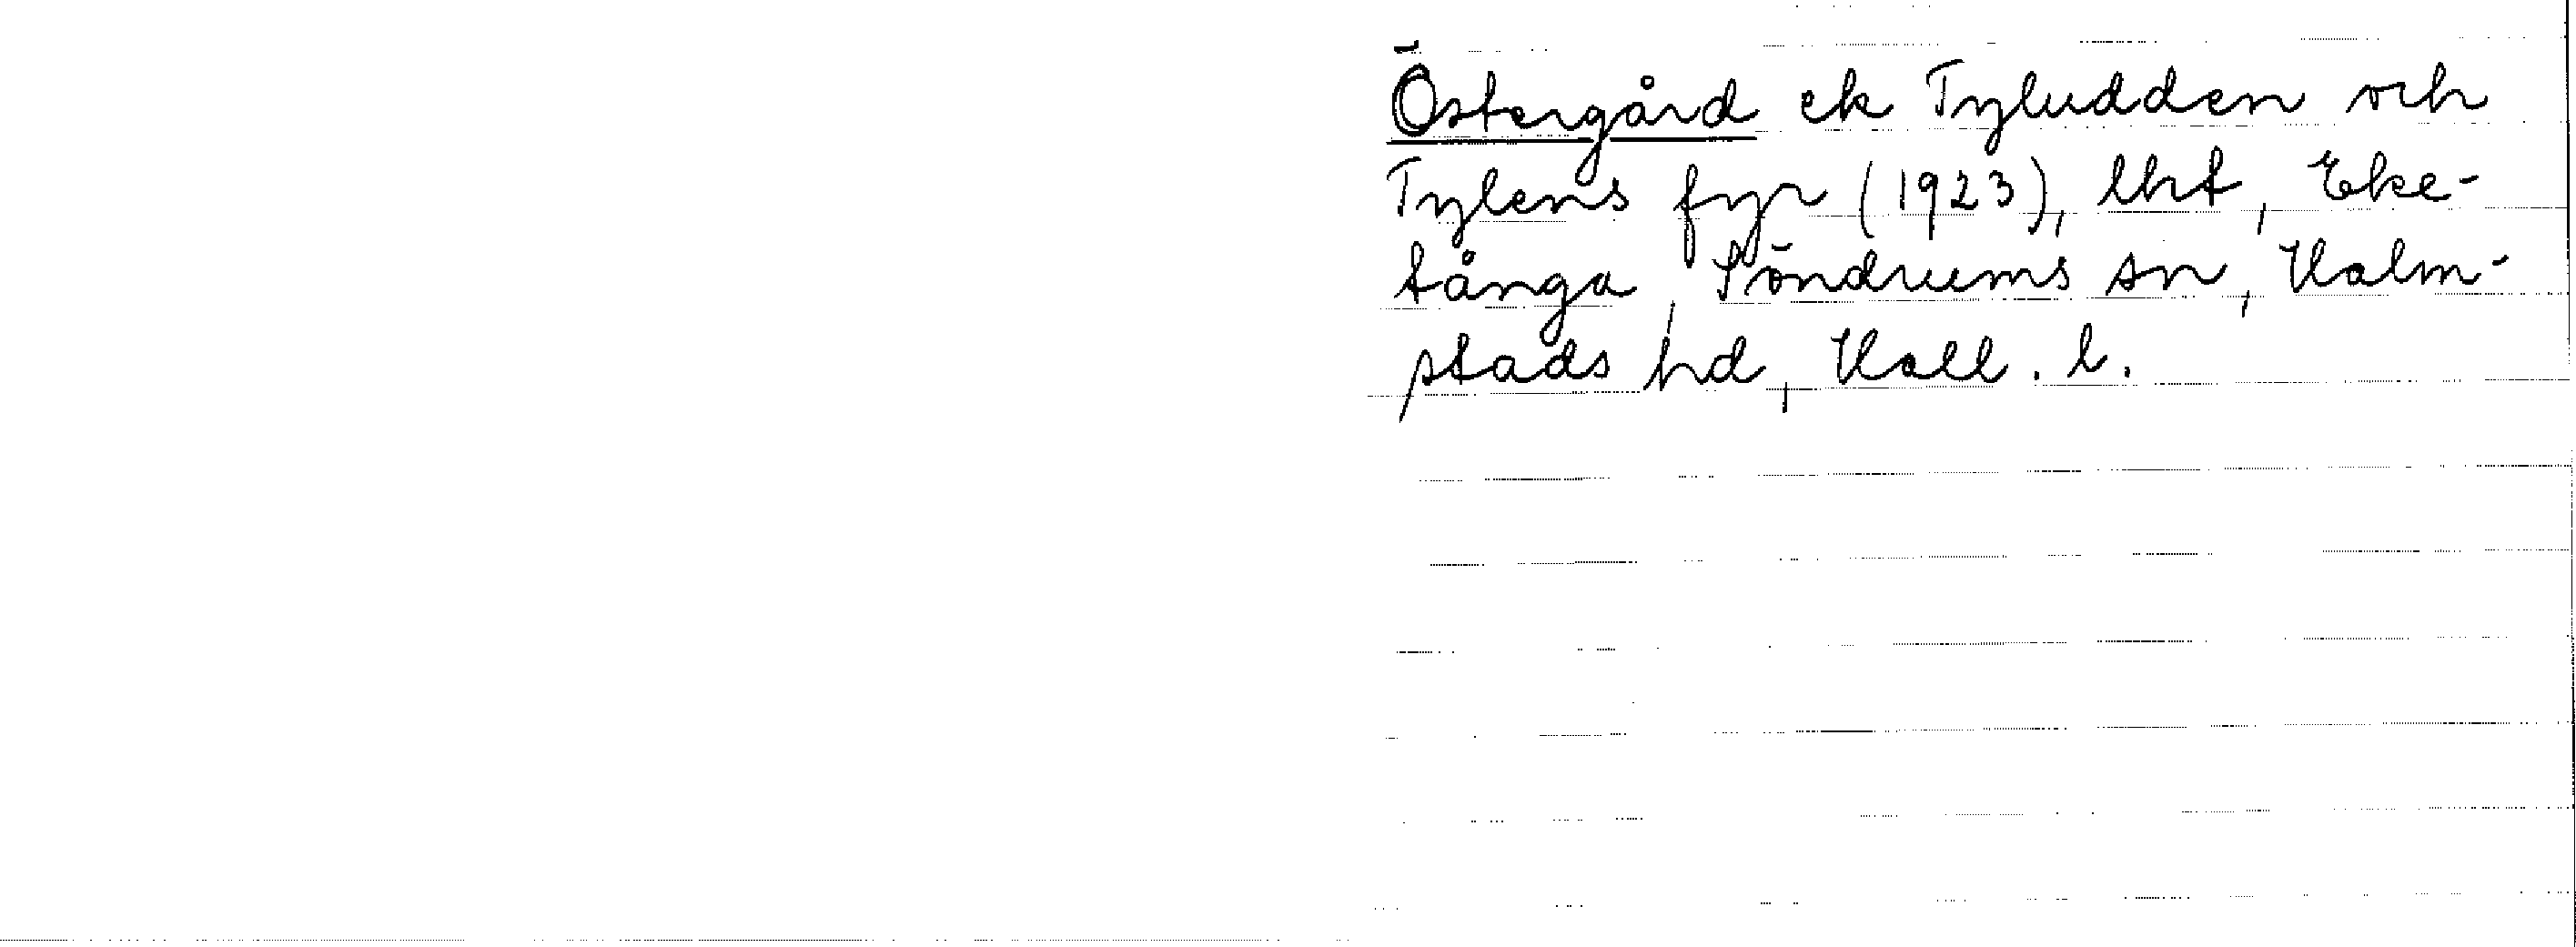 Östergård ek Tyludden och
Tylens fyr (1923), lht, Eke-
tånga, Söndrums sn, Halm-
stads hd, Hall. l.